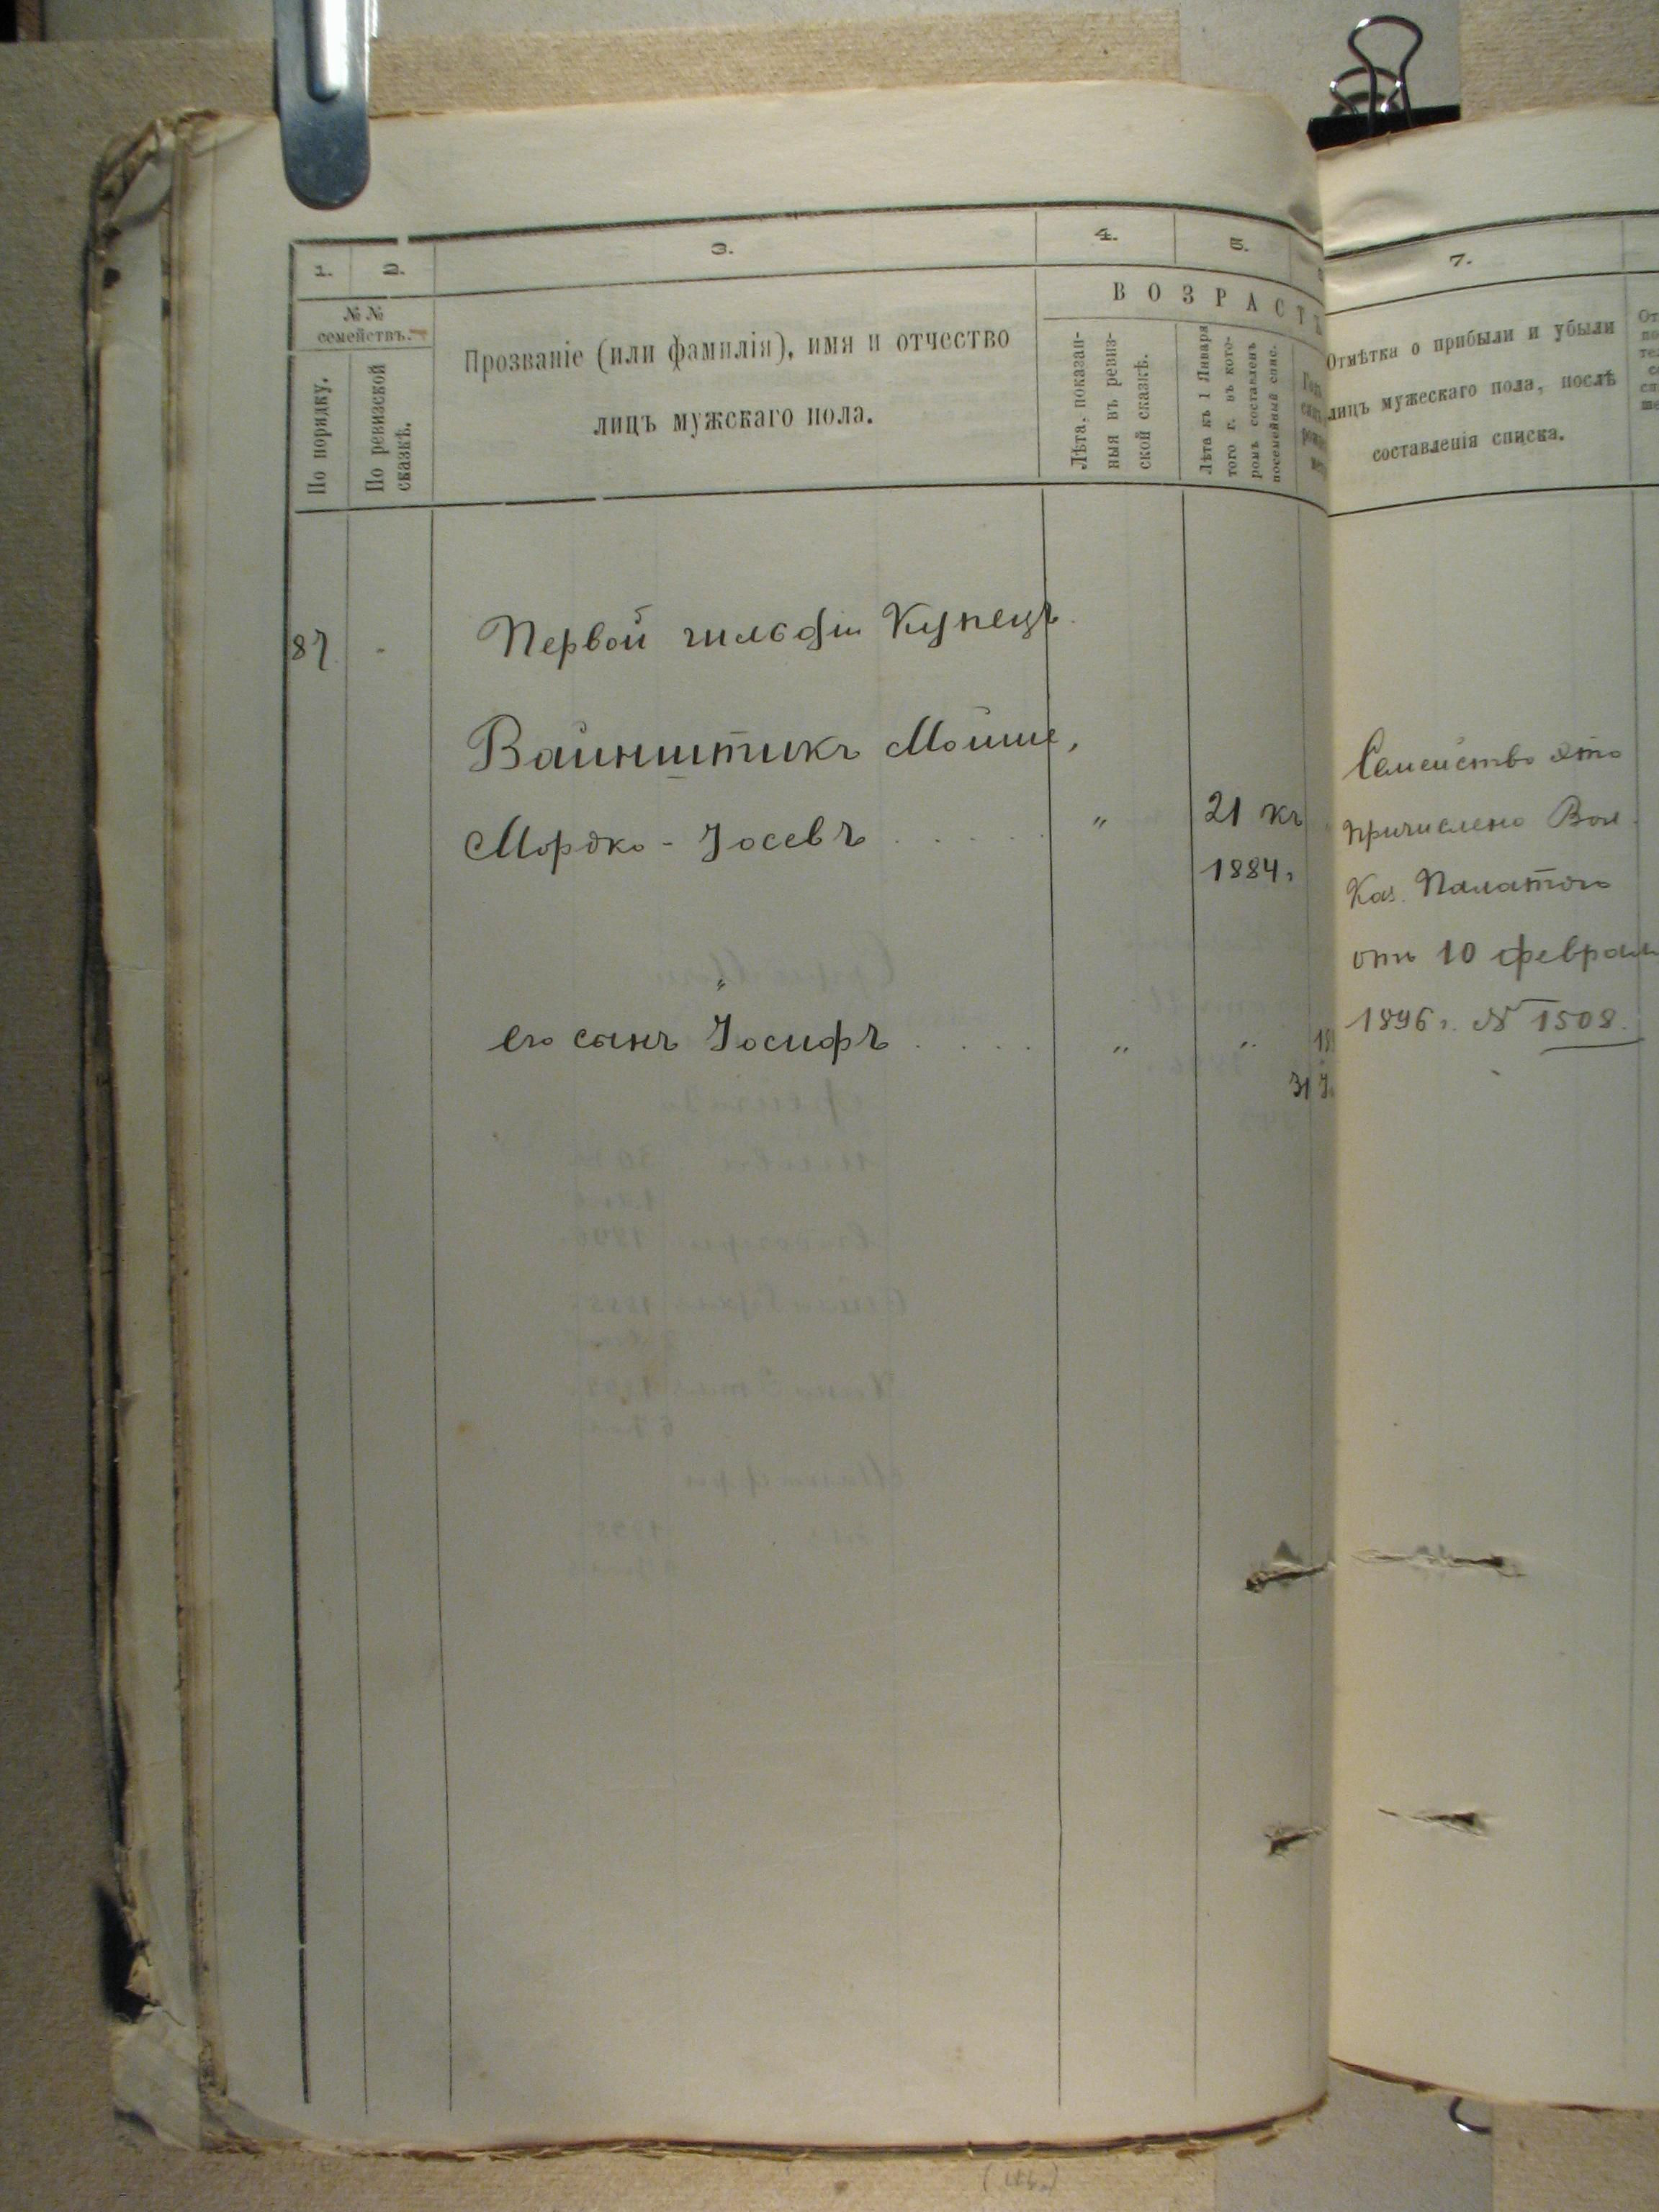 1. 2. 3. 4. 5.
№№ семействъ.
По порядку.
По ревизской сказкѣ.
Прозваніе (или фамилія), имя и отчество
лицъ мужскаго пола.
ВОЗРАСТЪ
Лѣта, показан-
ныя въ ревиз-
ской сказкѣ.
Лѣта къ 1 Января
того г. въ кото-
ромъ составленъ
посемейный спис.
87 -
Первой гильдіи Купецъ
Вайнштикъ Мойше,
Мордко-Іосевъ . . . . . " 21 къ
1884 г.
"
его сынъ Іосифъ . . . . " "
31
7.
Отмѣтка о прибыли и убыли
лицъ мужескаго пола, послѣ
составленія списка.
Семейство это
причислено Вол.
Каз. Палатою
отъ 10 февраля
1896 г. № 1508.